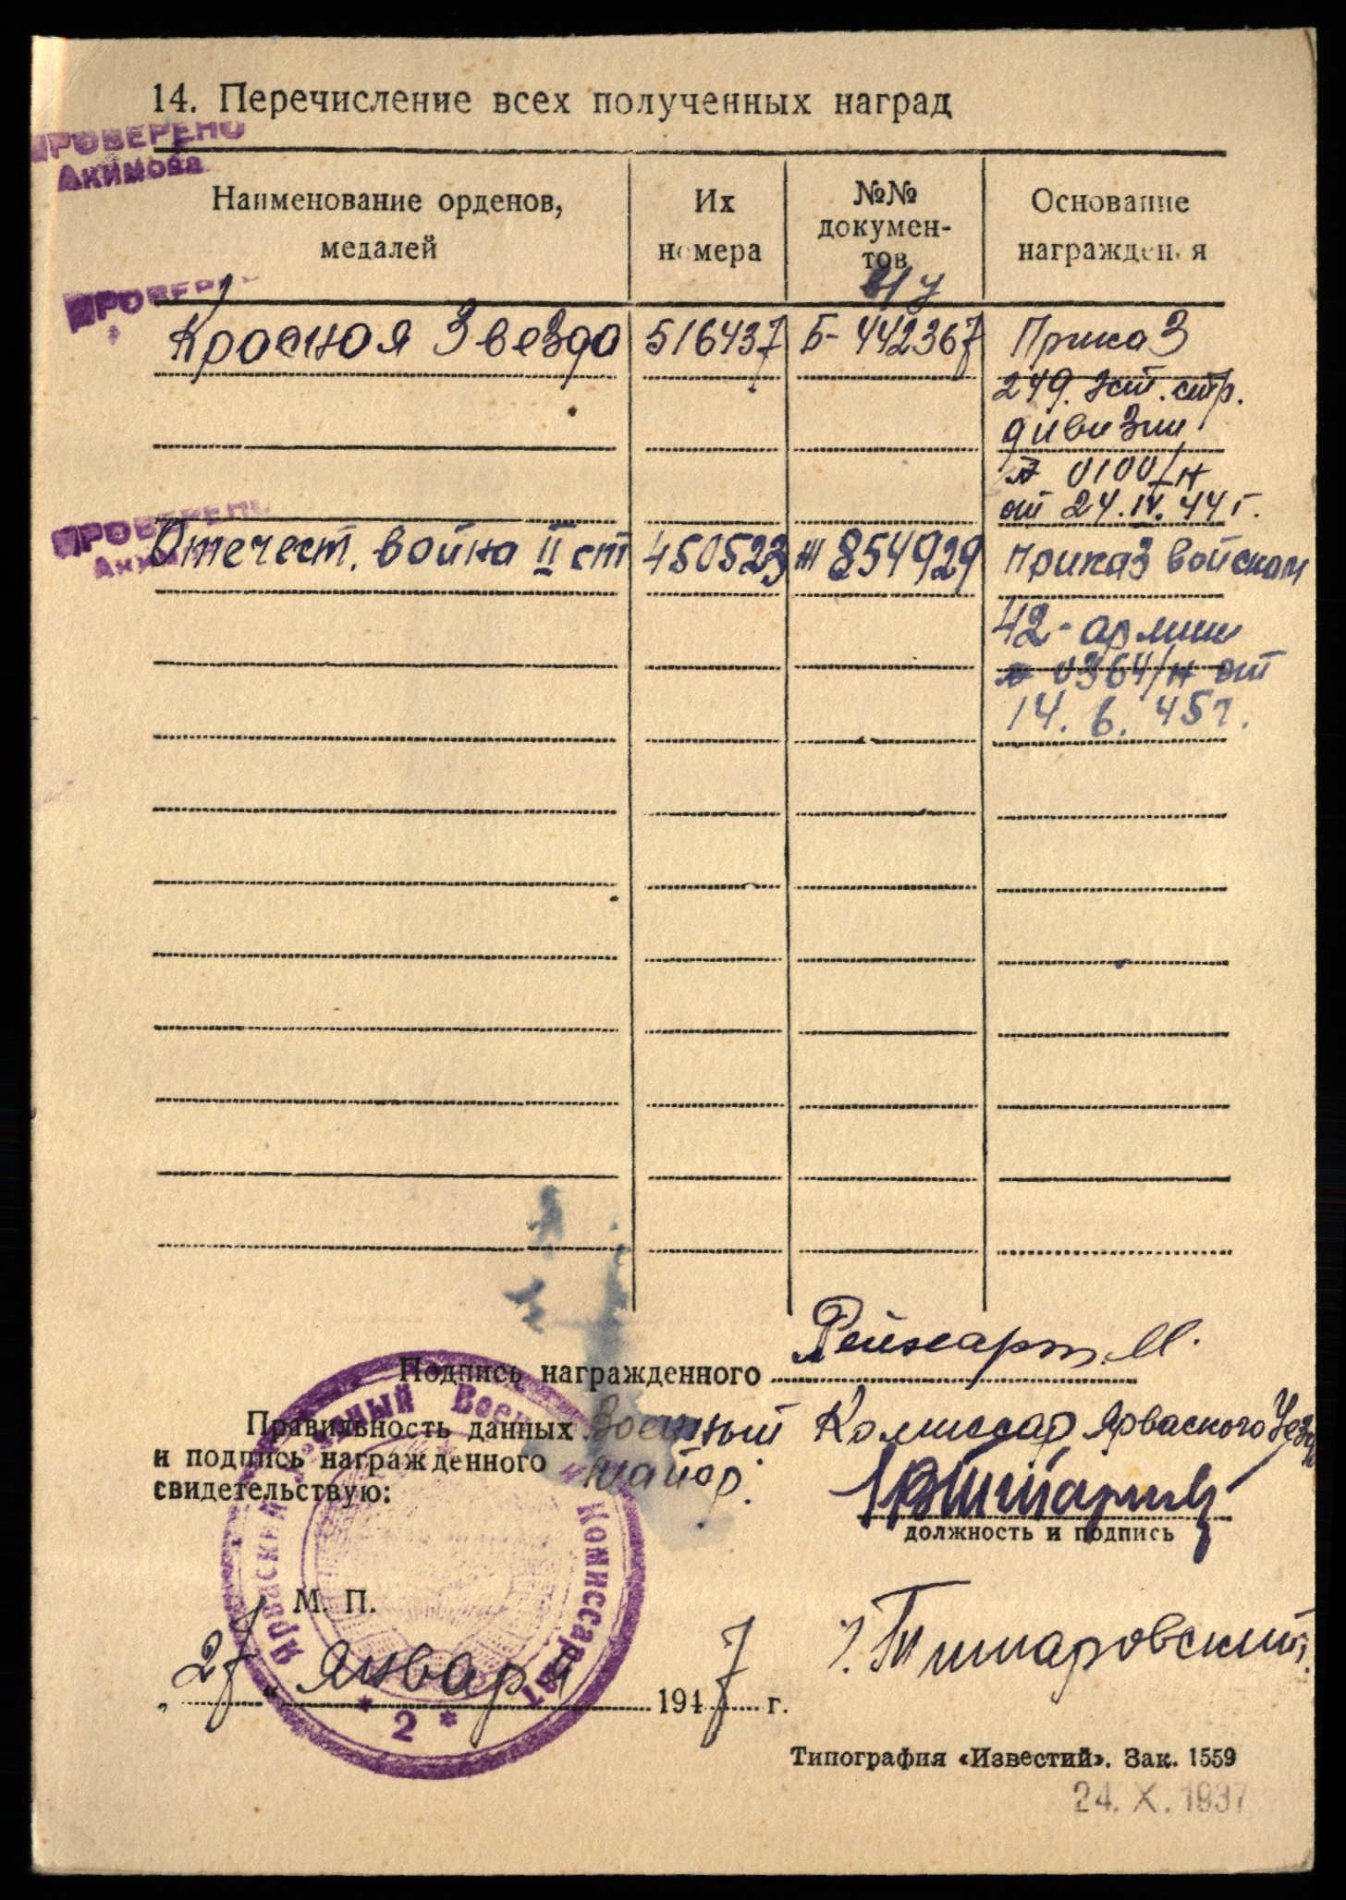 14. Перечисление всех полученных наград
ПРОВЕРЕНО
Акимова
Наименование орденов, медалей
Их номера
№№ документов
Основание награждения
ПРОВЕР
Красная Звезда 516437 Б-442367 Приказ
249. Эст. стр.
дивизии
№ 0100/н
от 24.IV.44 г.
ПРОВЕРЕНО
Отечест. война II ст 450523 Ж 854929 Приказ войскам
42-армии
№ 0364/н от
14. 6. 45 г.
Подпись награжденного Рейнарт. М.
Правильность данных и подпись награжденного свидетельствую:
Военный Комиссар Ярваского Уезд
майор.
должность и подпись
Ярваский Уездный Военный Комиссариат
* 2 *
М. П.
„27“ Января 1947 г.
Типография «Известий». Зак. 1559
24. X. 1937